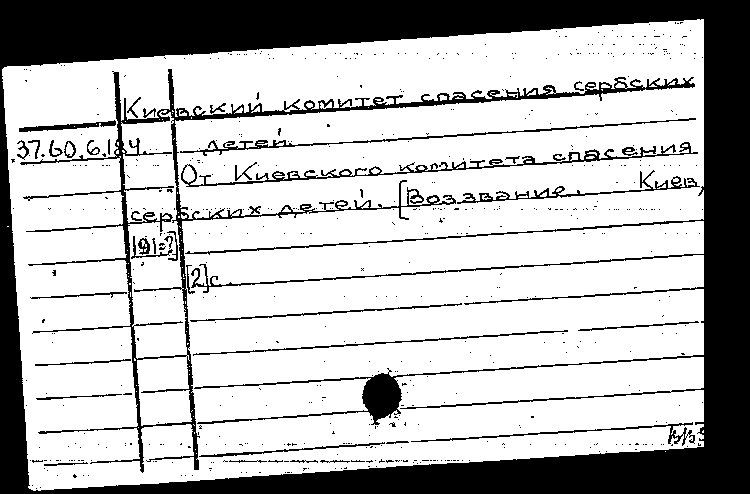 Киевский комитет спасения сербских
37.60.6.184. детей.
От Киевского комитета спасения
сербских детей. [Воззвание. Киев,
191-?]
[2]с.